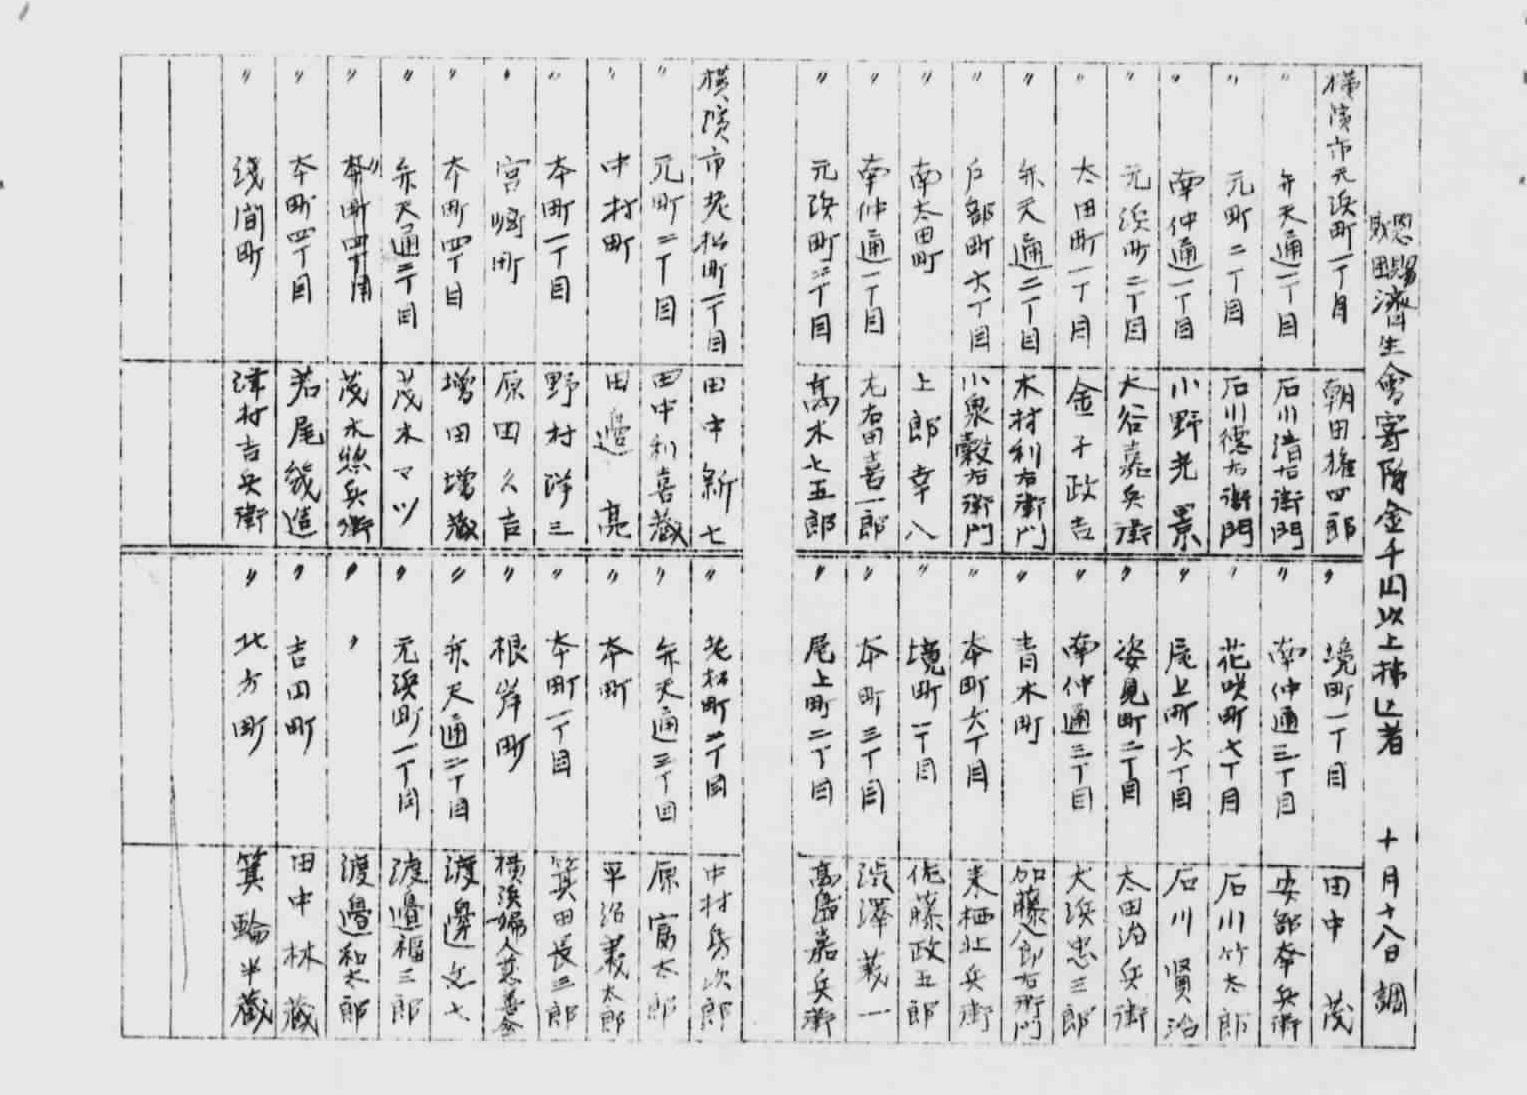 恩賜財團濟生會寄附金千円以上拂込者 十月十八日調
横濱市元浜町一丁目 朝田揔四郎
〃 弁天通二丁目 石川清右衛門
〃 元町二丁目 石川德右衛門
〃 南仲通一丁目 小野光景
〃 元浜町二丁目 大谷嘉兵衛
〃 太田町一丁目 金子政吉
〃 弁天通二丁目 木村利右衛門
〃 戸部町六丁目 小泉穀右衛門
〃 南太田町 上郎幸八
〃 南仲通一丁目 左右田喜一郎
〃 元浜町三丁目 高木七五郎
〃 境町一丁目 田中茂
〃 南仲通三丁目 安部幸兵衛
〃 花咲町七丁目 石川竹太郎
〃 尾上町六丁目 石川賢治
〃 姿見町二丁目 太田治兵衛
〃 南仲通三丁目 大浜忠三郎
〃 青木町 加藤八郎右衛門
〃 本町六丁目 来栖壮兵衛
〃 境町一丁目 佐藤政五郎
〃 本町三丁目 渋澤義一
〃 尾上町二丁目 高島嘉兵衛
横濱市老松町一丁目 田中新七
〃 元町二丁目 田中利喜蔵
〃 中村町 田邊亮
〃 本町一丁目 野村洋三
〃 宮崎町 原田久吉
〃 本町四丁目 増田増蔵
〃 弁天通二丁目 茂木マツ
〃 〃 茂木惣兵衛
〃 本町四丁目 若尾幾造
〃 浅間町 津村吉兵衛
〃 老松町二丁目 中村房次郎
〃 弁天通三丁目 原富太郎
〃 本町 平沼義太郎
〃 本町一丁目 箕田長三郎
〃 根岸町 横浜婦人慈善会
〃 弁天通二丁目 渡邊文七
〃 元浜町一丁目 渡邉福三郎
〃 〃 渡邉和太郎
〃 吉田町 田中林蔵
〃 北方町 箕輪半蔵